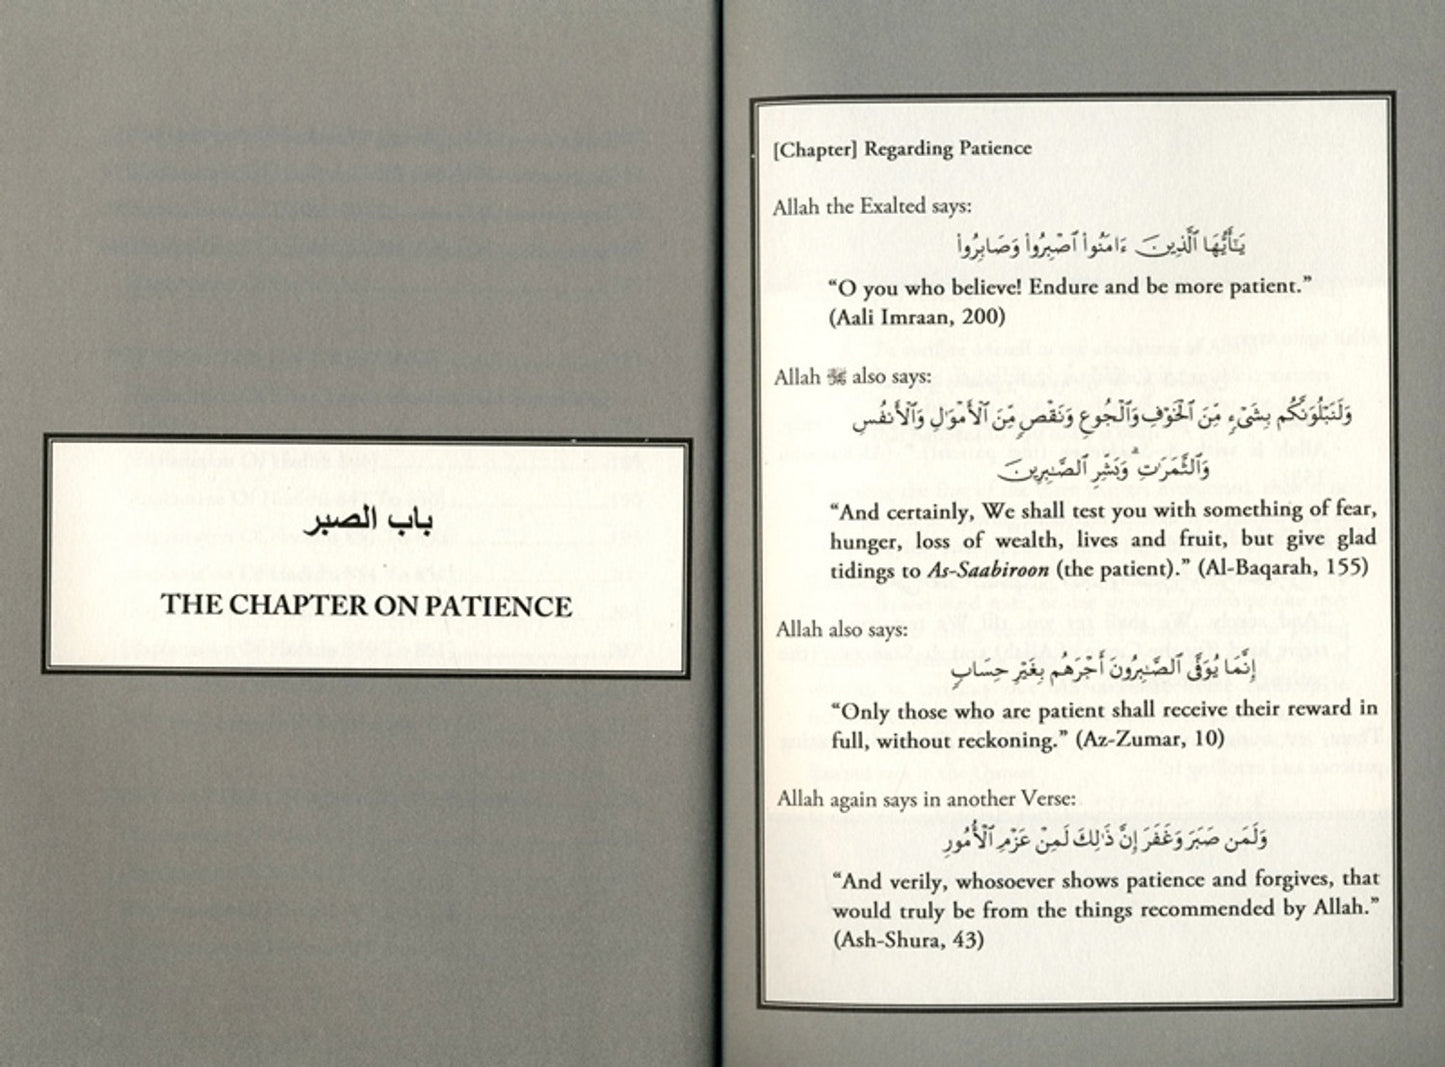 باب الصبر
THE CHAPTER ON PATIENCE
[Chapter] Regarding Patience
Allah the Exalted says:
يَـٰٓأَيُّهَا ٱلَّذِينَ ءَامَنُوا۟ ٱصْبِرُوا۟ وَصَابِرُوا۟
“O you who believe! Endure and be more patient.”
(Aali Imraan, 200)
Allah also says:
وَلَنَبْلُوَنَّكُم بِشَىْءٍ مِّنَ ٱلْخَوْفِ وَٱلْجُوعِ وَنَقْصٍ مِّنَ ٱلْأَمْوَٰلِ وَٱلْأَنفُسِ
وَٱلثَّمَرَٰتِ ۗ وَبَشِّرِ ٱلصَّـٰبِرِينَ
“And certainly, We shall test you with something of fear,
hunger, loss of wealth, lives and fruit, but give glad
tidings to As-Saabiroon (the patient).” (Al-Baqarah, 155)
Allah also says:
إِنَّمَا يُوَفَّى ٱلصَّـٰبِرُونَ أَجْرَهُم بِغَيْرِ حِسَابٍ
“Only those who are patient shall receive their reward in
full, without reckoning.” (Az-Zumar, 10)
Allah again says in another Verse:
وَلَمَن صَبَرَ وَغَفَرَ إِنَّ ذَٰلِكَ لَمِنْ عَزْمِ ٱلْأُمُورِ
“And verily, whosoever shows patience and forgives, that
would truly be from the things recommended by Allah.”
(Ash-Shura, 43)